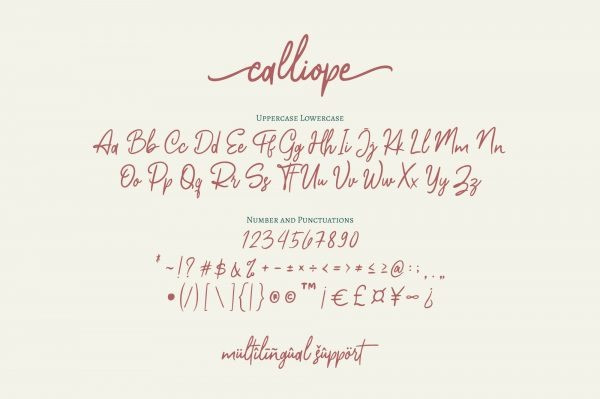 calliope
Uppercase Lowercase
Aa Bb Cc Dd Ee Ff Gg Hh Ii Jj Kk Ll Mm Nn
Oo Pp Qq Rr Ss Tt Uu Vv Ww Xx Yy Zz
Number and Punctuations
1234567890
* ~ ! ? # $ & % + − ± × ÷ < = > ≠ ≤ ≥ @ : ; , . „
• ( / ) [ \ ] { | } ® © ™ ¡ € £ ¤ ¥ ∞ ¿
mültîlïñgûal šûppört